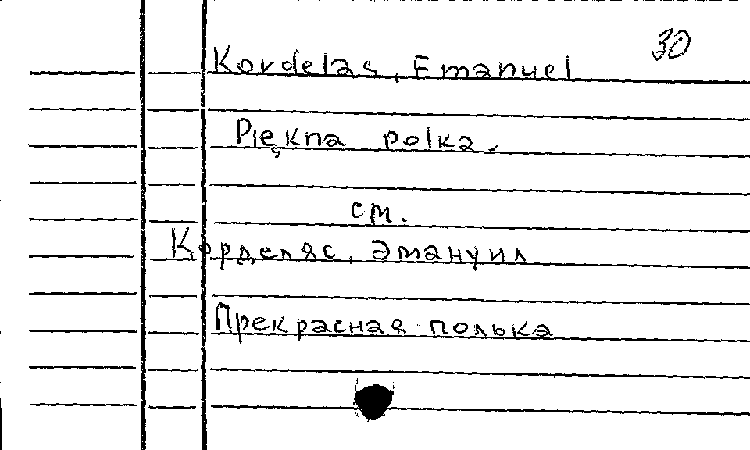 30
Kordelas, Emanuel
Piękna polka.
см.
Корделяс, Эмануил
Прекрасная полька